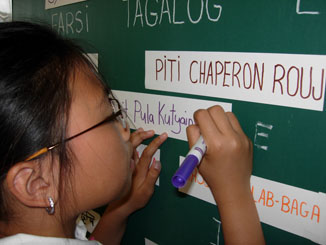 FARSI
TAGALOG
PITI CHAPERON ROUJ
Pula Kutyain
LAB-BAGA